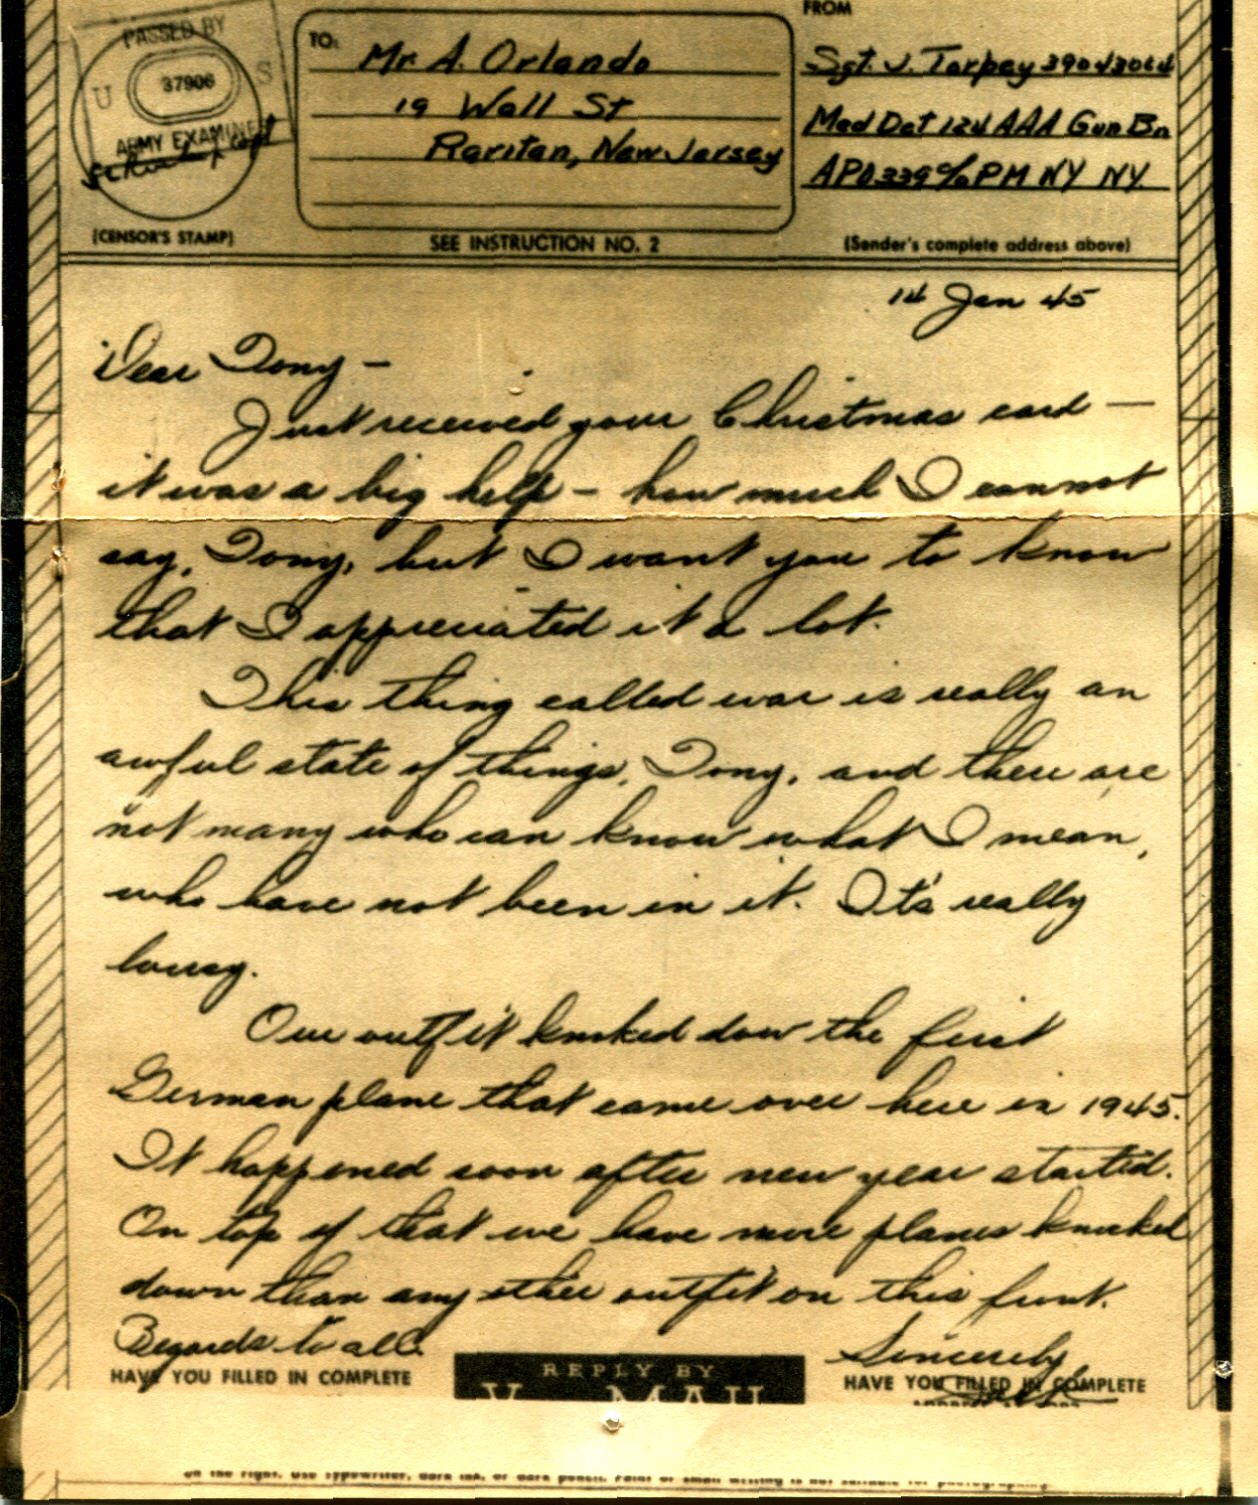 PASSED BY
U 37906 S
ARMY EXAMINE
(CENSOR'S STAMP)
TO:
Mr. A. Orlando
19 Wall St
Raritan, New Jersey
SEE INSTRUCTION NO. 2
FROM
Sgt. J. Tarpey 39043064
Med Det 124 AAA Gun Bn
APO 339 c/o PM NY NY.
(Sender's complete address above)
14 Jan 45
Dear Tony -
Just received your Christmas card -
it was a big help - how much I cannot
say, Tony, but I want you to know
that I appreciated it a lot.
This thing called war is really an
awful state of things, Tony, and there are
not many who can know what I mean,
who have not been in it. It's really
lousy.
Our outfit knoked dow the first
German plane that came over here in 1945.
It happened soon after new year started.
On top of that we have more planes knocked
down than any other outfit on this front.
Regards to all.
Sincerely
HAVE YOU FILLED IN COMPLETE
REPLY BY
V-MAIL
HAVE YOU FILLED IN COMPLETE
on the right. Use typewriter, dark ink, or dark pencil. Faint or small writing is not suitable for photographing.